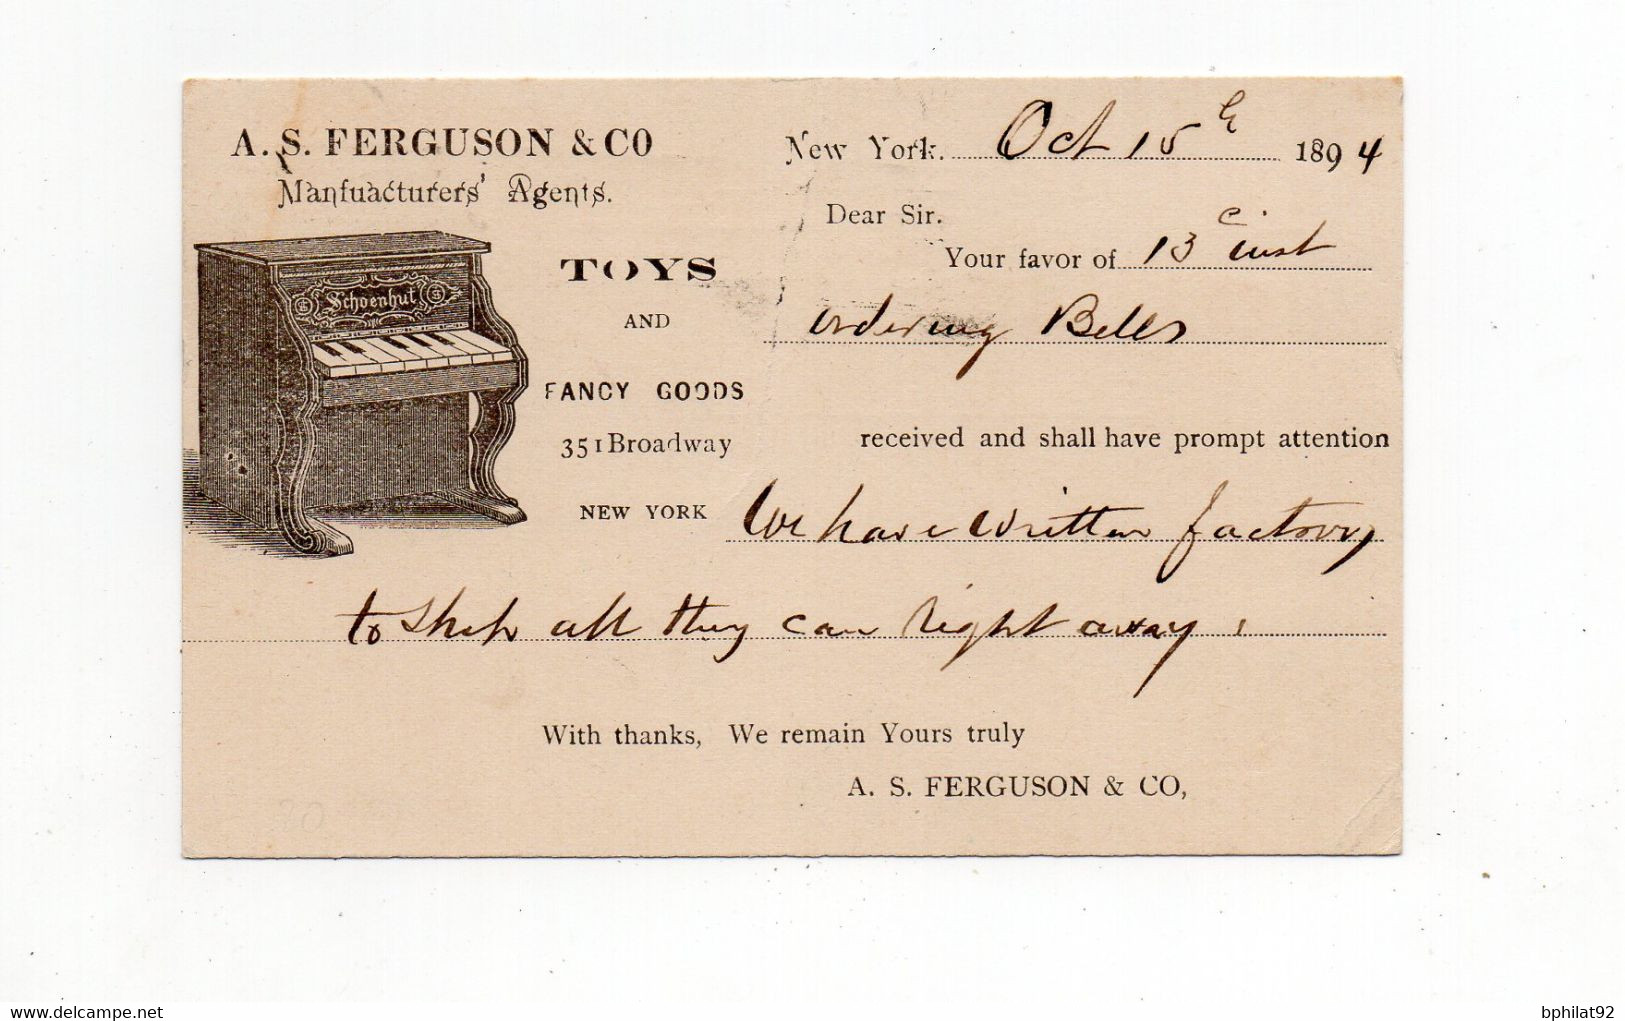 A. S. FERGUSON & CO
Manfuacturers' Agents.
Schoenhut
TOYS
AND
FANCY GOODS
351 Broadway
NEW YORK
New York. Oct 15th 1894
Dear Sir.
Your favor of 13 inst
ordering Bells
received and shall have prompt attention
We have written factory
to ship all they can right away.
With thanks, We remain Yours truly
A. S. FERGUSON & CO,
delcampe.net
bphilat92